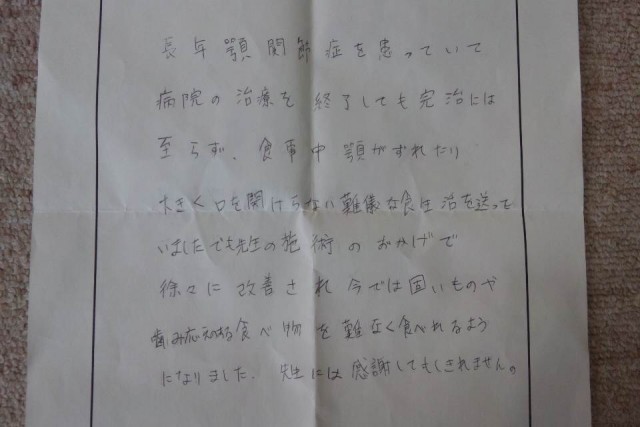 長年顎関節症を患っていて
病院の治療を終了しても完治には
至らず、食事中顎がずれたり
大きく口を開けらない難儀な食生活を送って
いましたでも先生の施術のおかげで
徐々に改善され今では固いものや
歯み応えある食べ物を難なく食べれるよう
になりました。先生には感謝してもしきれません。